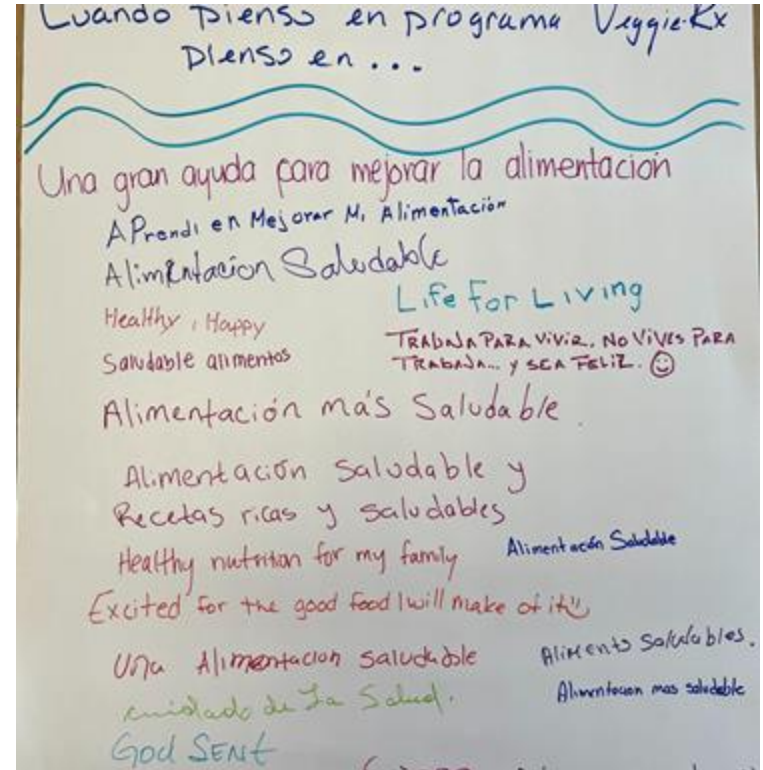 Cuando pienso en programa Veggie-Rx
pienso en...
Una gran ayuda para mejorar la alimentacion
APrendi en Mejorar Mi Alimentación
Alimentacion Saludable
Life For Living
Healthy, Happy
TRABAJA PARA ViViR. NO ViVES PARA
Saludable alimentos
TRABAJA... y SEA FELIZ. ☺
Alimentación más Saludable.
Alimentación saludable y
Recetas ricas y saludables
Healthy nutrition for my family
Alimentación Saludable
Excited for the good food I will make of it!
Una Alimentacion saludable
Alimento Saludables.
cuidado de La Salud.
Alimentacion mas saludable
God SENt